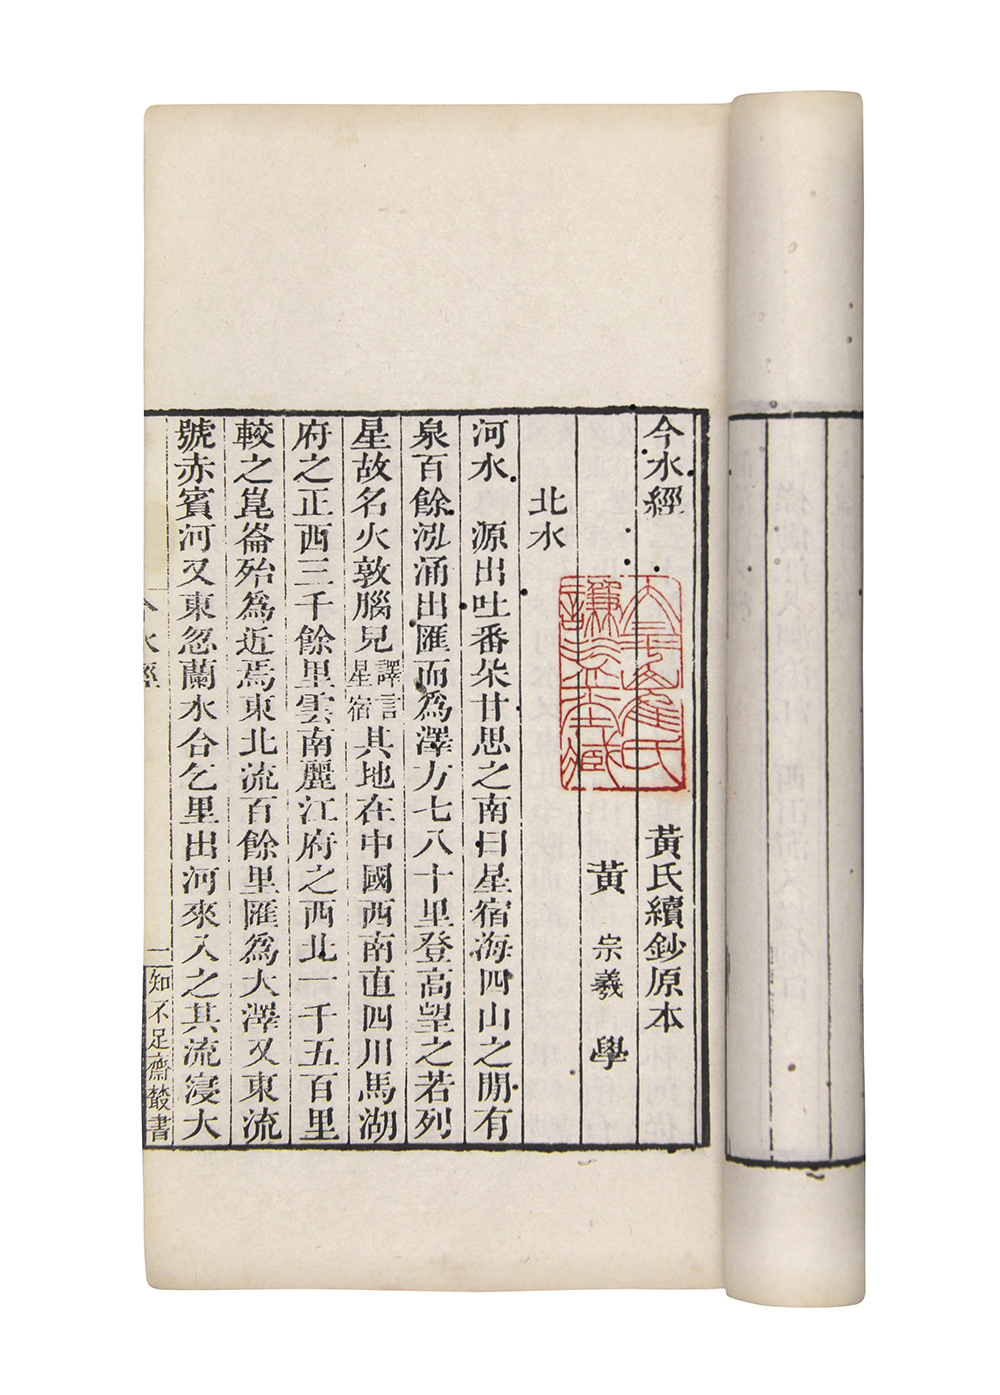 今水經 黃氏續鈔原本
黃 宗羲 學
北水
河水 源出吐番朵甘思之南曰星宿海四山之閒有
泉百餘泓涌出匯而爲澤方七八十里登高望之若列
星故名火敦腦兒譯言星宿其地在中國西南直四川馬湖
府之正西三千餘里雲南麗江府之西北一千五百里
較之崑崙殆爲近焉東北流百餘里匯爲大澤又東流
號赤賓河又東忽蘭水合乞里出河來入之其流寖大
今水經 一 知不足齋叢書